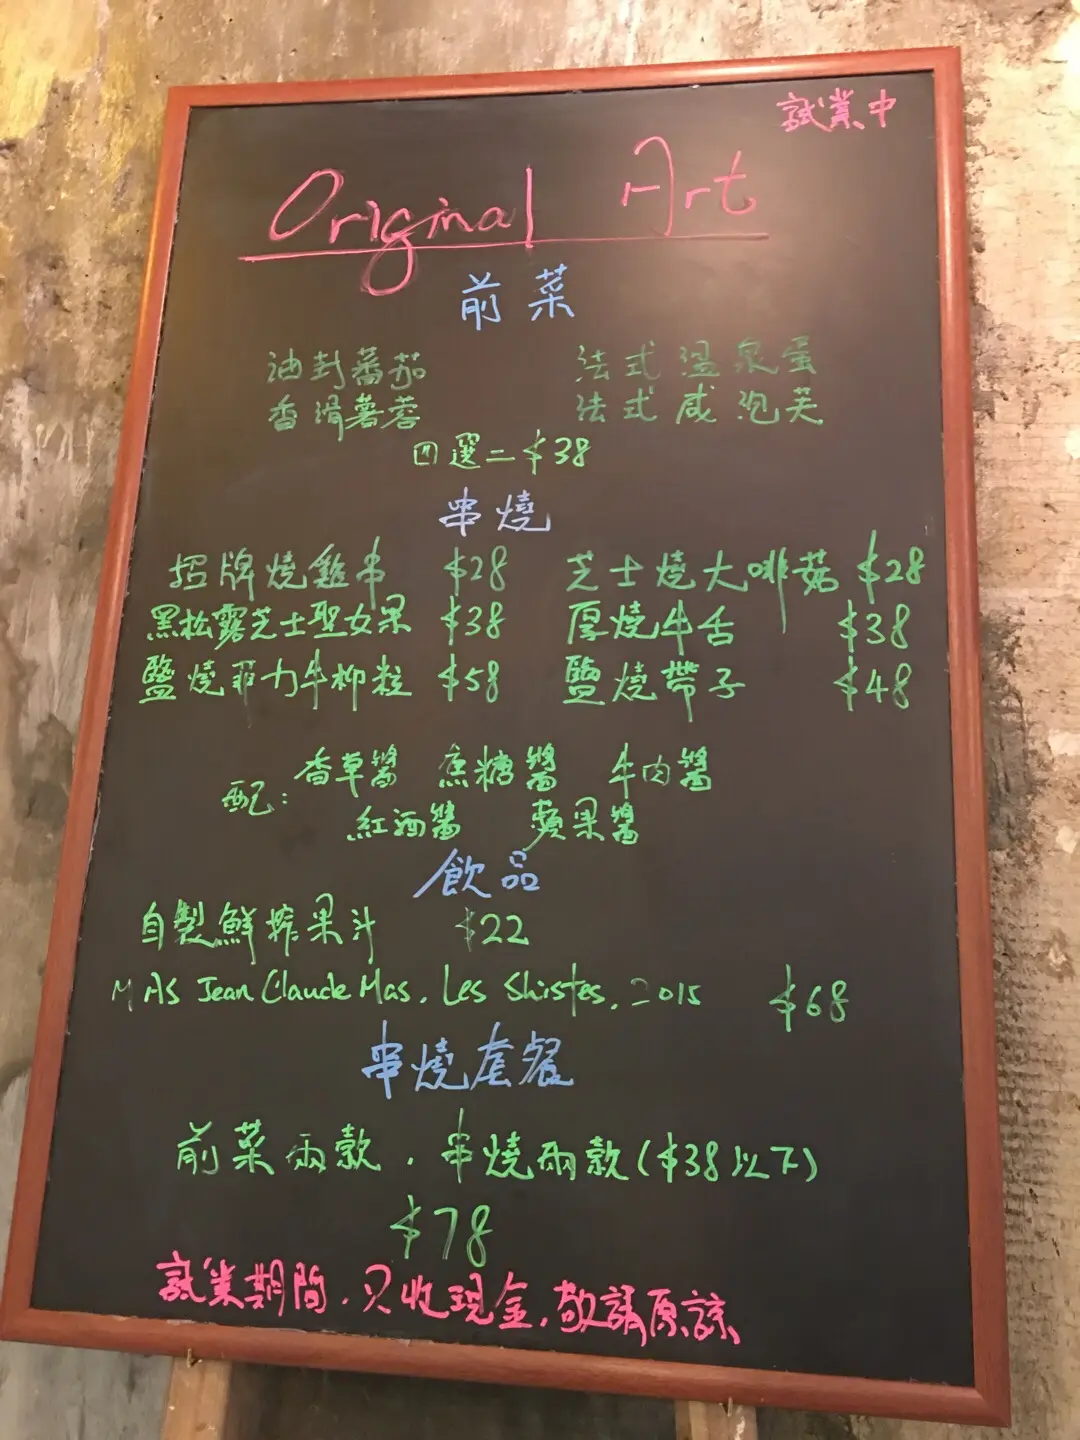 試業中
Original Art
前菜
油封蕃茄 法式溫泉蛋
香滑薯蓉 法式咸泡芙
四選二 $38
串燒
招牌燒雞串 $28 芝士燒大啡菇 $28
黑松露芝士聖女果 $38 厚燒牛舌 $38
鹽燒菲力牛柳粒 $58 鹽燒帶子 $48
配: 香草醬 焦糖醬 牛肉醬
紅酒醬 蘋果醬
飲品
自製鮮搾果汁 $22
MAS Jean Claude Mas. Les Shistes. 2015 $68
串燒套餐
前菜兩款，串燒兩款($38以下)
$78
試業期間，只收現金，敬請原諒